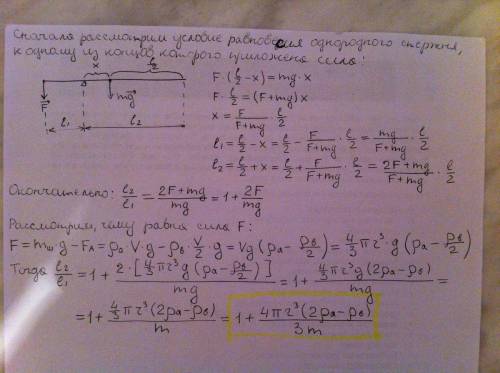 Сначала рассмотрим условие равновесия однородного стержня,
к одному из концов которого приложена сила:
x l/2
F⃗ mg⃗
l₁ l₂
F·(l/2 − x) = mg·x
F·l/2 = (F+mg)x
x = F/(F+mg)·l/2
l₁ = l/2 − x = l/2 − F/(F+mg)·l/2 = mg/(F+mg)·l/2
l₂ = l/2 + x = l/2 + F/(F+mg)·l/2 = (2F+mg)/(F+mg)·l/2
Окончательно: l₂/l₁ = (2F+mg)/mg = 1 + 2F/mg
Рассмотрим, чему равна сила F:
F = mш·g − FА = ρa·V·g − ρв·V/2·g = Vg(ρa − ρв/2) = 4/3 πr³·g(ρa − ρв/2)
Тогда l₂/l₁ = 1 + 2·[4/3 πr³g(ρa − ρв/2)]/mg = 1 + 4/3 πr³g(2ρa − ρв)/mg =
= 1 + 4/3 πr³(2ρa − ρв)/m = 1 + 4πr³(2ρa − ρв)/3m